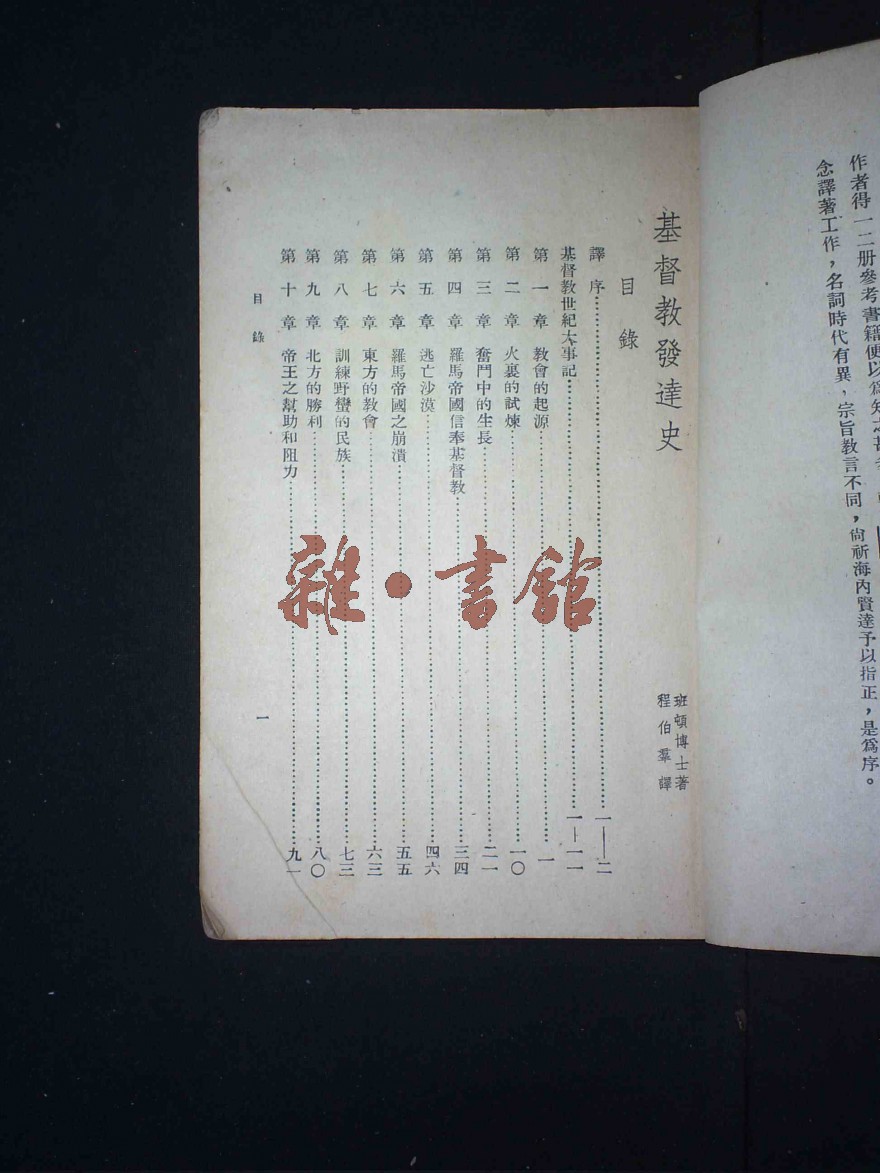 作者得一二册參考書籍便以爲知
念譯著工作，名詞時代有異，宗旨教言不同，尙祈海內賢達予以指正，是爲序。
基督教發達史
班頓博士著
程伯羣譯
目錄
譯序…………一——二
基督教世紀大事記…………一—一一
第一章 教會的起源…………一
第二章 火裏的試煉…………一〇
第三章 奮鬥中的生長…………二一
第四章 羅馬帝國信奉基督教…………三四
第五章 逃亡沙漠…………四六
第六章 羅馬帝國之崩潰…………五五
第七章 東方的教會…………六三
第八章 訓練野蠻的民族…………七三
第九章 北方的勝利…………八〇
第十章 帝王之幫助和阻力…………九一
目錄
一
雜·書館